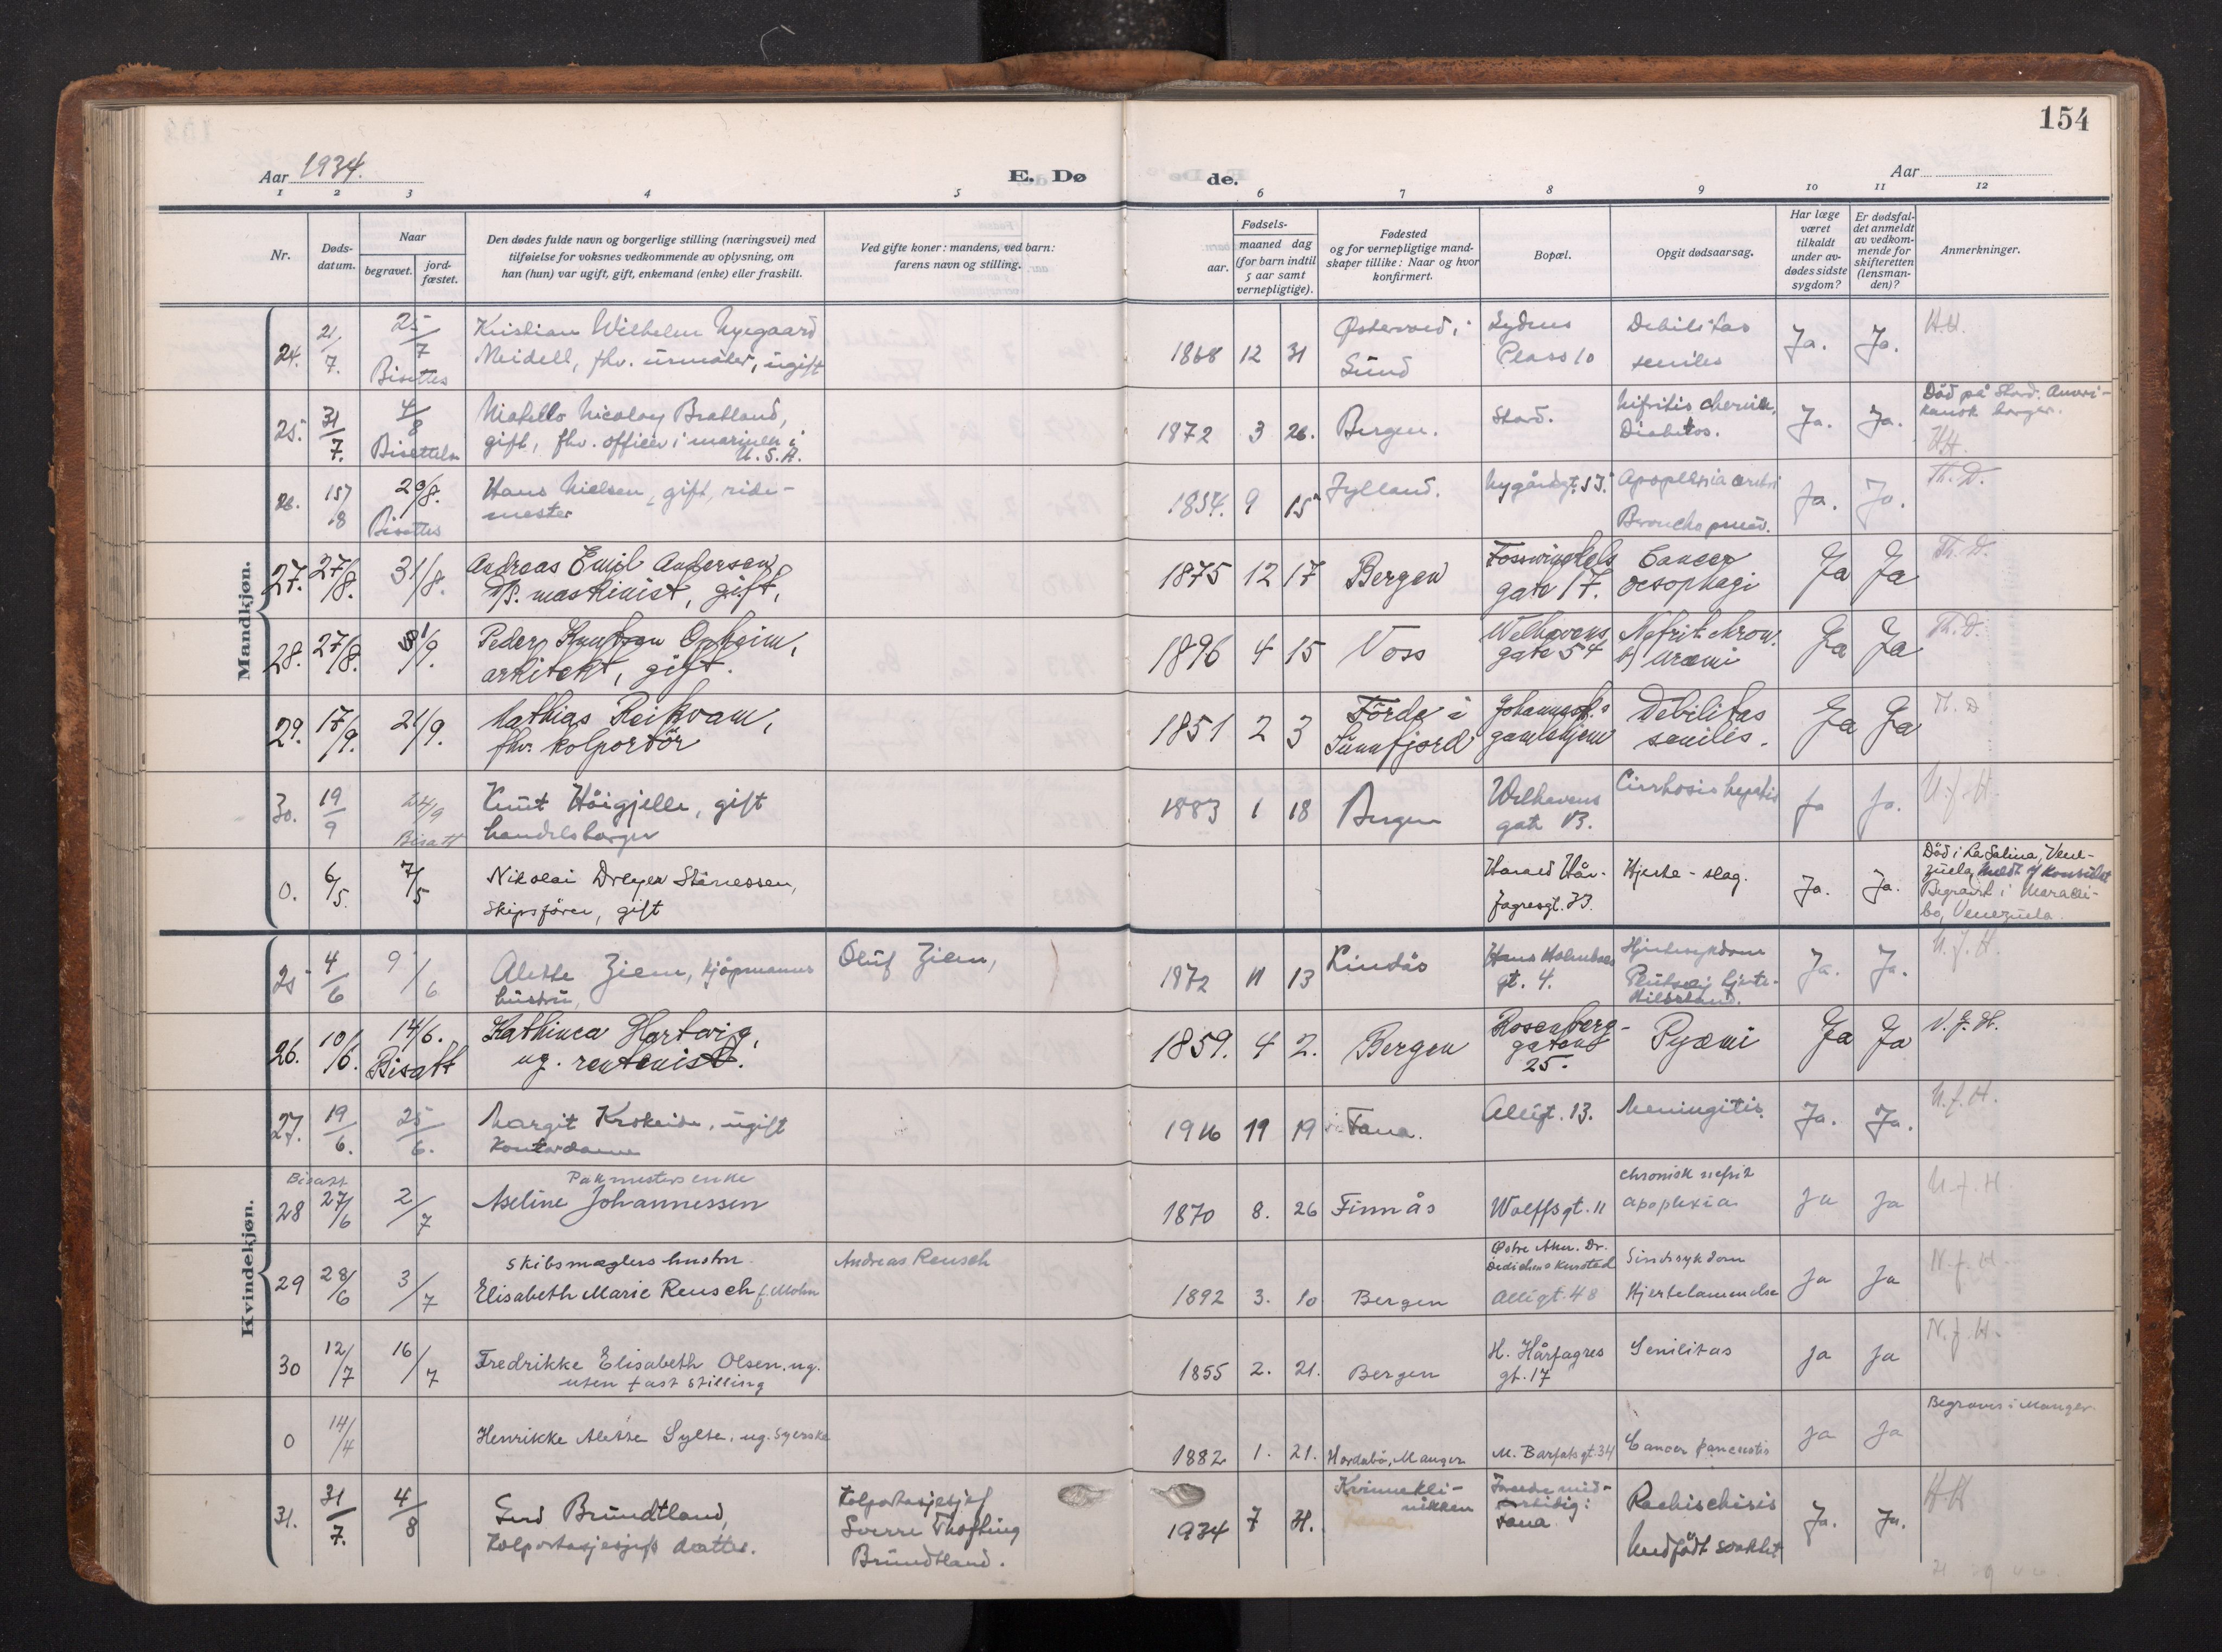 154
Aar 1934.
E. Dø
de.
Aar
1 2 3 4 5 6 7 8 9 10 11 12
Nr.
Døds-
datum.
Naar
begravet.
jord-
fæstet.
Den dødes fulde navn og borgerlige stilling (næringsvei) med
tilføielse for voksnes vedkommende av oplysning, om
han (hun) var ugift, gift, enkemand (enke) eller fraskilt.
Ved gifte koner: mandens, ved barn:
farens navn og stilling.
Fødsels-
aar.
maaned dag
(for barn indtil
5 aar samt
vernepligtige).
Fødested
og for vernepligtige mand-
skaper tillike: Naar og hvor
konfirmert.
Bopæl.
Opgit dødsaarsag.
Har læge
været
tilkaldt
under av-
dødes sidste
sygdom?
Er dødsfal-
det anmeldt
av vedkom-
mende for
skifteretten
(lensman-
den)?
Anmerkninger.
Mandkjøn.
24. 21/7. 25/7 Kristian Wilhelm Nygaard 1868 12 31 Lydens Debilitas Ja. Ja. H.H.
Bisettes Meidell, fhv. urmaker, ugift Sund Plass 10 seniles
25. 31/7. 4/8 Nicolay Bratland, 1872 3 26. Bergen. Stord. Ja. Ja. Död på Stord. Ameri-
gift, fhv. officer i marinen i Diabetes. kansk borger.
U.S.A. H.H.
26. 15/8 20/8. Hans Nielsen, gift, ride- 1854. 9 15 Jylland. Apoplexia cerebri Ja. Ja. Th. D.
Bisettes mester Bronchopneu.
27. 27/8. 31/8. Andreas Emil Andersen, 1875 12 17 Bergen Fosswinckels Cancer Ja Ja Th. D.
D/S. maskinist, gift, gate 17. oesophagi
28. 27/8. 1/9. Peder Knutsen Opheim, 1896 4 15 Voss Welhavens Nefrit. chron. Ja Ja Th. D.
arkitekt, gift. gate 54 uræmi
29. 17/9. 21/9. Mathias Reikvam, 1851 2 3 Förde i Debilitas Ja Ja
fhv. kolportör Sunnfjord gamlehjem seniles.
30. 19/9 24/9 Knut Höigjelle, gift 1883 1 18 Bergen Welhavens Cirrhosis hepatis Ja Ja.
Bisatt handelsborger gate
0. 6/5. 7/5 Nikolai Dreyer Hjerte-slag. Ja. Ja. Död i La Salina, Vene-
Skipsförer, gift zuela, meldt af Konsulat
Begravet i Maracai-
bo, Venezuela.
Kvindekjøn.
25 4/6 9/6 Alette Ziem, kjöpmanns Oluf Ziem, 1872 11 13 Lindås Hans Holmboes Hjertesykdom Ja. Ja. N. f. H.
hustru, gt. 4. Plutselig hjerte-
26. 10/6. 14/6. Kathinca Hartwig, 1859. 4 2. Bergen Rosenberg- Pyæmi Ja Ja N. f. H.
Bisatt ug. rentenist. gaten
25.
27. 19/6. 25/6. Margit Krokeide, ugift 1916 11 19 Fana. Allégt. 13. Meningitis. Ja. Ja. N. f. H.
Kontordame
Bisatt Pakmesters enke chronisk nefrit
28 27/6 2/7 Aseline Johannessen 1870 8. 26 Finnås Wolffsgt. 11 apoplexia Ja Ja N. f. H.
skibsmæglers hustru Andreas Reusch Sindssykdom
29 28/6 3/7 Elisabeth Marie Reusch f. Mohn 1892 3. 10 Bergen Allégt. 48 Hjertelammelse Ja Ja N. f. H.
30 12/7 16/7 Fredrikke Elisabeth Olsen, ug. 1855 2. 21. Bergen H. Hårfagres Senilitas Ja Ja N. f. H.
uten fast stilling gt. 17
Begraves i Manger.
0 14/4 Henrikke Alette Sylte, ug. syerske 1882 1. 21. Hordabö, Manger M. Barfotsgt. 34 Cancer pancreatis Ja Ja
31. 31/7. 4/8 Brundtland, Kolportasjesjef 1934 7 31. Kvinnekli- Rachischisis Ja. Ja. H.H
Kolportasjesjefs datter. Sverre Thofting nikken Fana Medfödt
Brundtland.